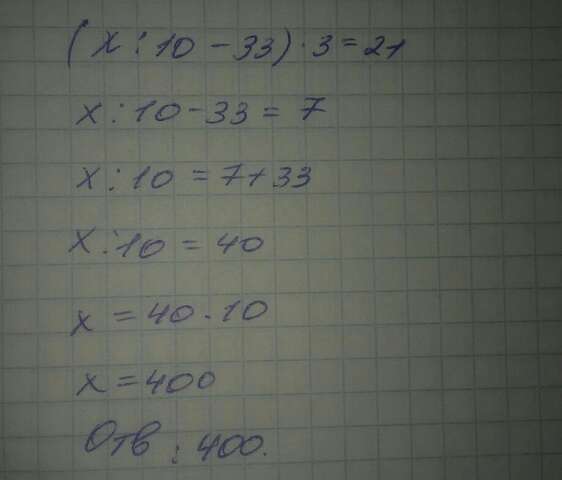 (x : 10 - 33) · 3 = 21
x : 10 - 33 = 7
x : 10 = 7 + 33
x : 10 = 40
x = 40 · 10
x = 400
Отв : 400.